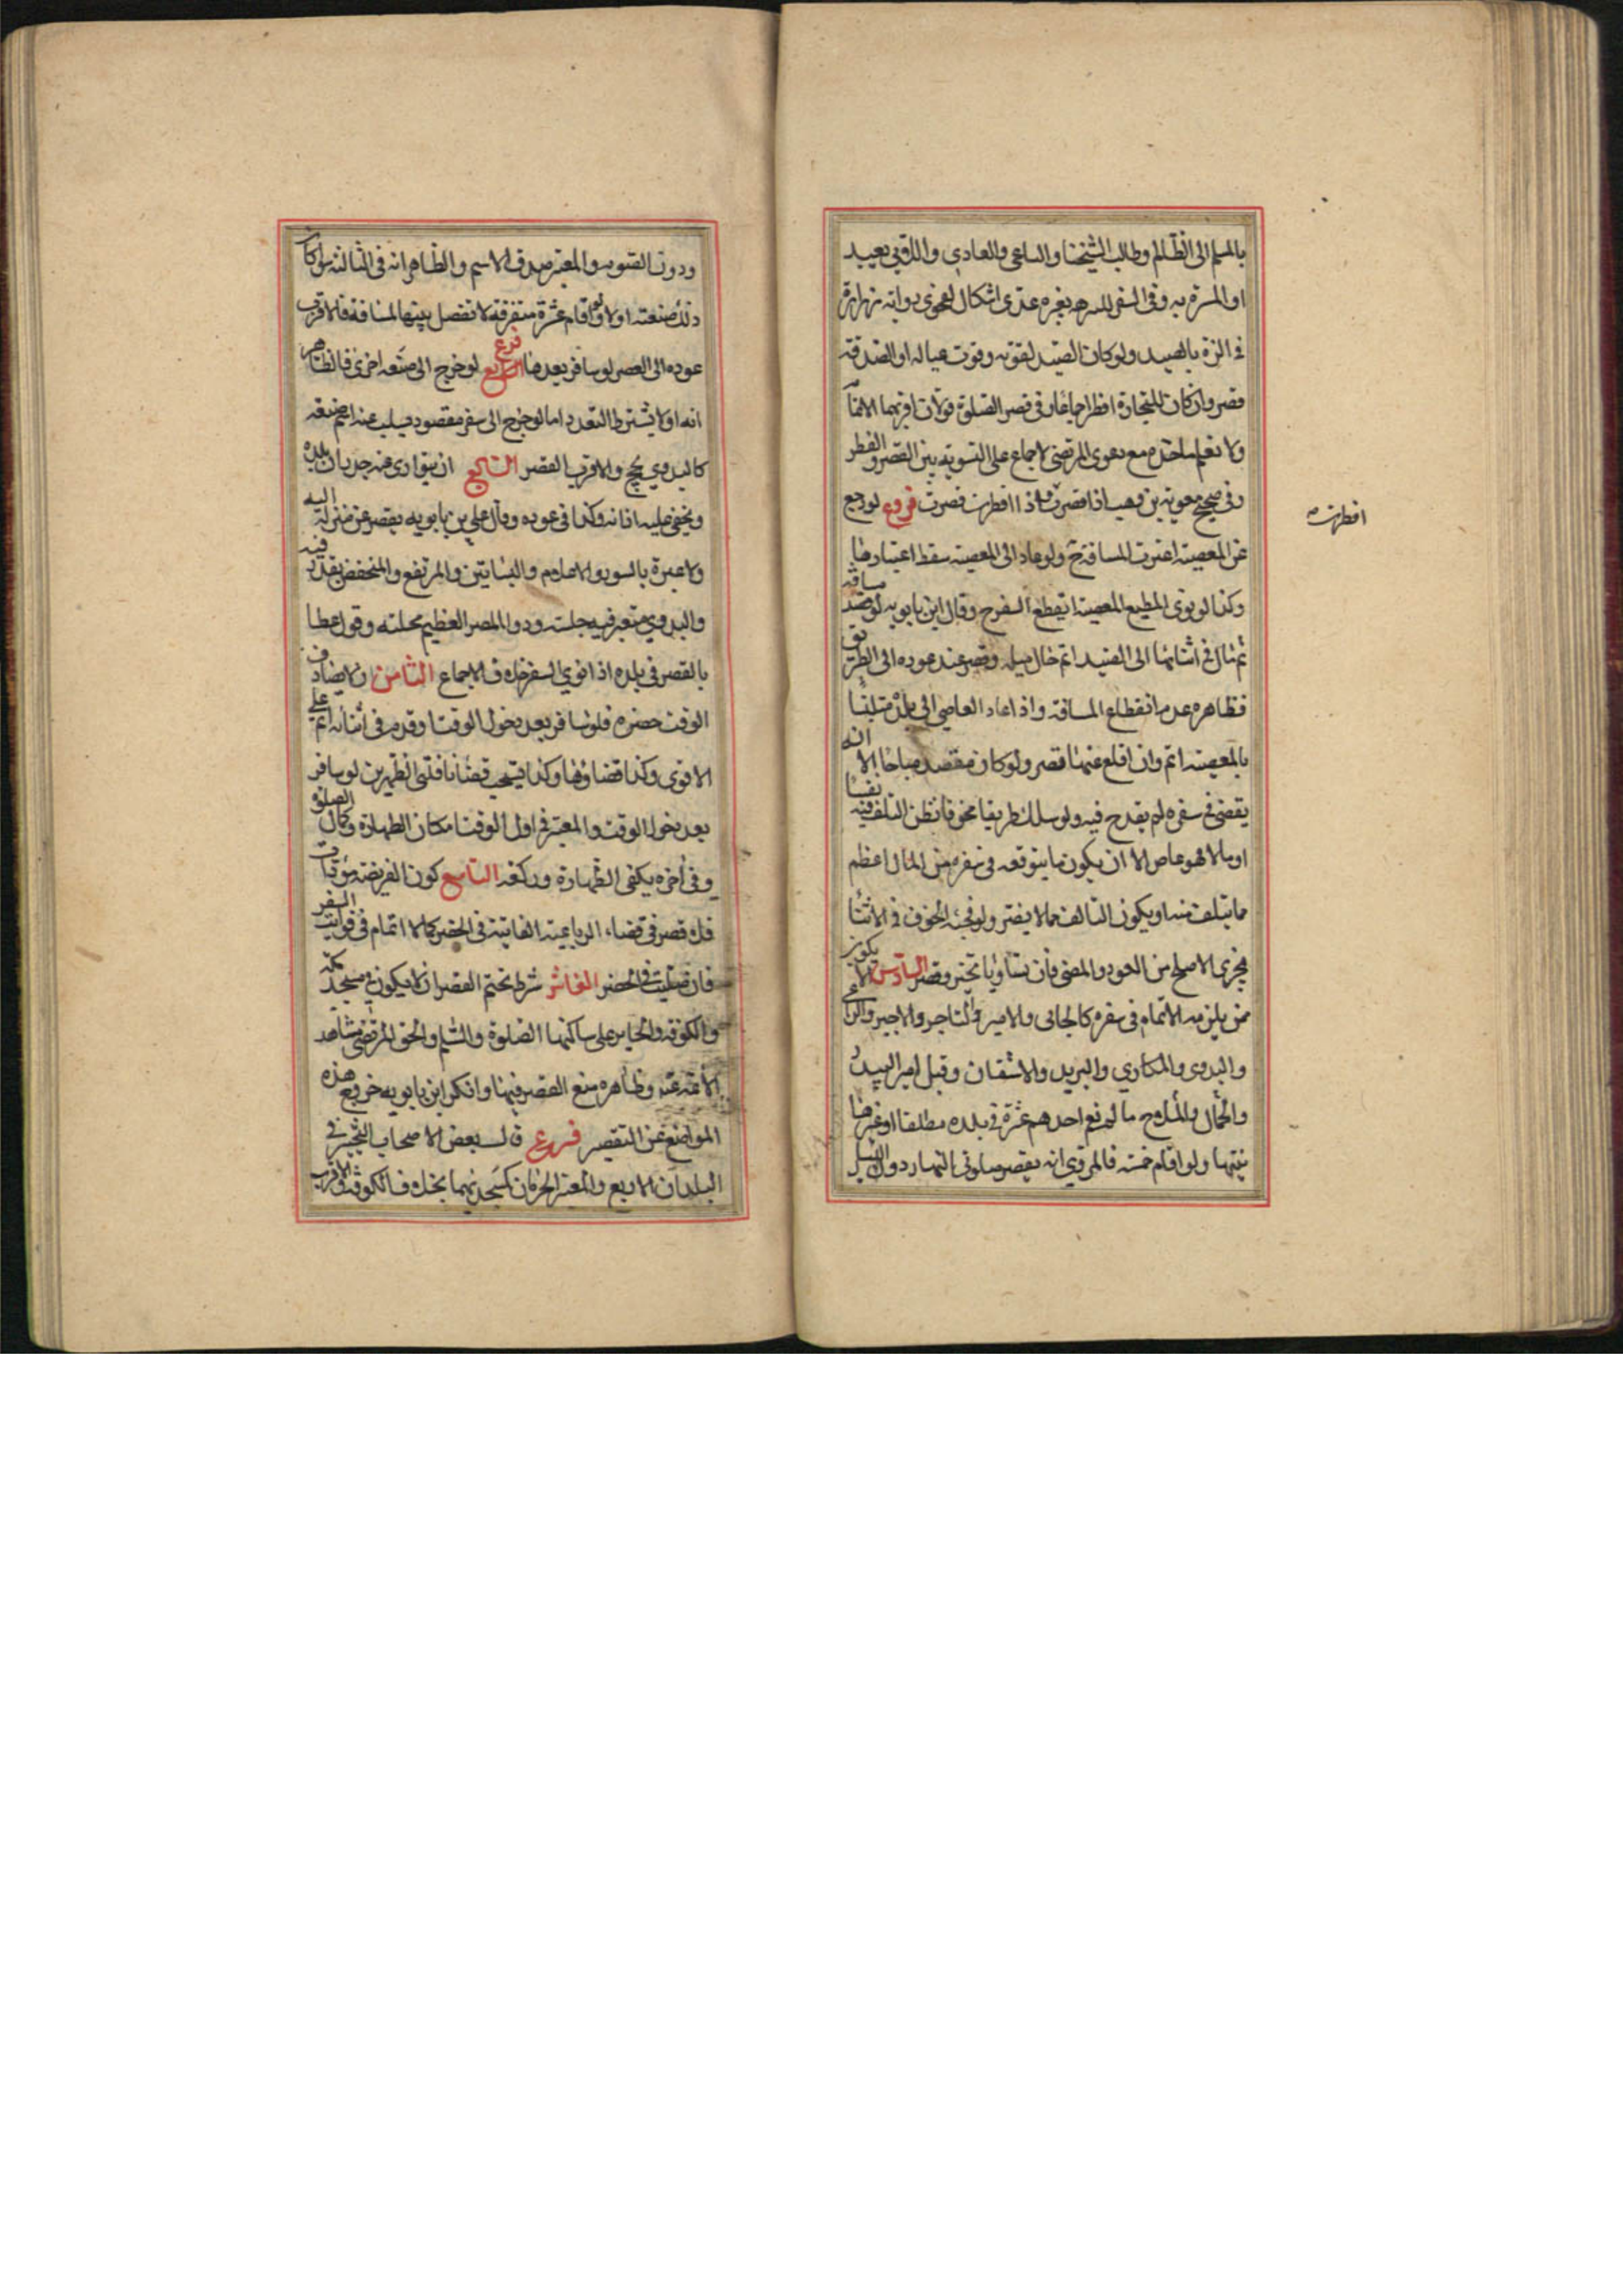 بالسلم الى الظالم وطالب الشحنا والساعي والعادي واللاهي بصيد
او المسرة به وفي السفر للنزهة بغيره عندي اشكال لفحوى رواية زرارة
في النزه بالصيد ولو كان الصيد لقوته وقوت عياله او الصدقة
قصر وان كان للتجارة افطر اجماعا وفي قصر الصلوة قولان اقربهما الاتمام
ولا نعلم ماخذه مع دعوى المرتضى الاجماع على التسوية بين القصر والفطر
وفي صحيح معوية بن وهب اذا قصرت واذا افطرت قصرت فروع لو رجع
افطرت
عن المعصية اعتبرت المسافة ح ولو عاد الى المعصية سقط اعتبارها
وكذا لو نوى المطيع المعصية انقطع السفر ح وقال ابن بابويه لو قصد مسافة
ثم مال في اثنائها الى الصيد اتم حال ميله وقصر عند عوده الى الطريق
فظاهره عدم انقطاع المسافة واذا عاد العاصي الى بلده متلبسا
بالمعصية اتم وان اقلع عنها قصر ولو كان مقصده مباحا الا انه
يقضي في سفره لم يقدح فيه ولو سلك طريقا مخوفا نظن التلف فيه نفسا
او مالا فهو عاص الا ان يكون ما يتوقعه في سفره من المال اعظم
مما يتلف منه او يكون التالف مما لا يضر ولو فجئه الخوف في الاثنا
تحرى الاصلح من العود والمضى فان تساويا تخير وقصر السادس الا يكون
ممن يلزمه الاتمام في سفره كالجابي والامير والتاجر والاجير والراعي
والبدوى والمكاري والبريد والاشتقان وقيل امير البيدر
والجمال والملاح ما لم يقم احدهم عشرة في بلده مطلقا او غيرها
بنيتها ولو اقام خمسة فالمروي انه يقصر صلوتي النهار دون الليل
ودون الصوم والمعتبر صدق الاسم والظاهر انه في الثالثة سوا كان
ذلك صنعته او لا ولو اقام عشرة متفرقة لا تفصل بينها المسافة فالاقرب
عوده الى القصر لو سافر بعدها فرع لو خرج الى صنعة اخرى فالظاهر
انه اولا يشترط التعدد اما لو خرج الى سفر مقصود يسلب عنه اسم صنعته
كالبدوي يحج والاقرب القصر السابع ان يتوارى عنه جدران بلده
ويخفى عليه اذانه وكذا في عوده وقال علي بن بابويه يقصر من منزله اليه
ولا عبرة بالسور والاعلام والبساتين والمرتفع والمنخفض يقدر فيه
والبدوي معتبر فيه حلته وذو المصر العظيم محلته وقول عطا
بالقصر في بلده اذا نوى السفر خلاف الاجماع الثامن ان لا يصادف
الوقت حضره فلو سافر بعد دخول الوقت او قدم في اثنائه اتم على
الاقوى وكذا قضاؤها وكذا يستحب قضا نافلتي الظهرين لو سافر
بعد دخول الوقت والمعتبر في اول الوقت امكان الطهارة وكمال الصلوة
وفي اخره يكفي الطهارة وركعة التاسع كون الفريضة مؤداة
فلا قصر في قضاء الرباعية الفائتة في الحضر كما لا اتمام في فوايت السفر
فان صليت في الحضر العاشر شرط تحتم القصر ان لا يكون في مسجد مكة
والكوفة والحاير على ساكنها الصلوة والسلم والحق المرتضى مشاهد
الائمة وظاهره منع القصر فيها وانكر ابن بابويه خروج هذه
المواضع عن التقصير فروع قال بعض الاصحاب التخيير في
البلدان الاربع والمعتبر الحرمان كمسجديهما بخلاف الكوفة والاقرب